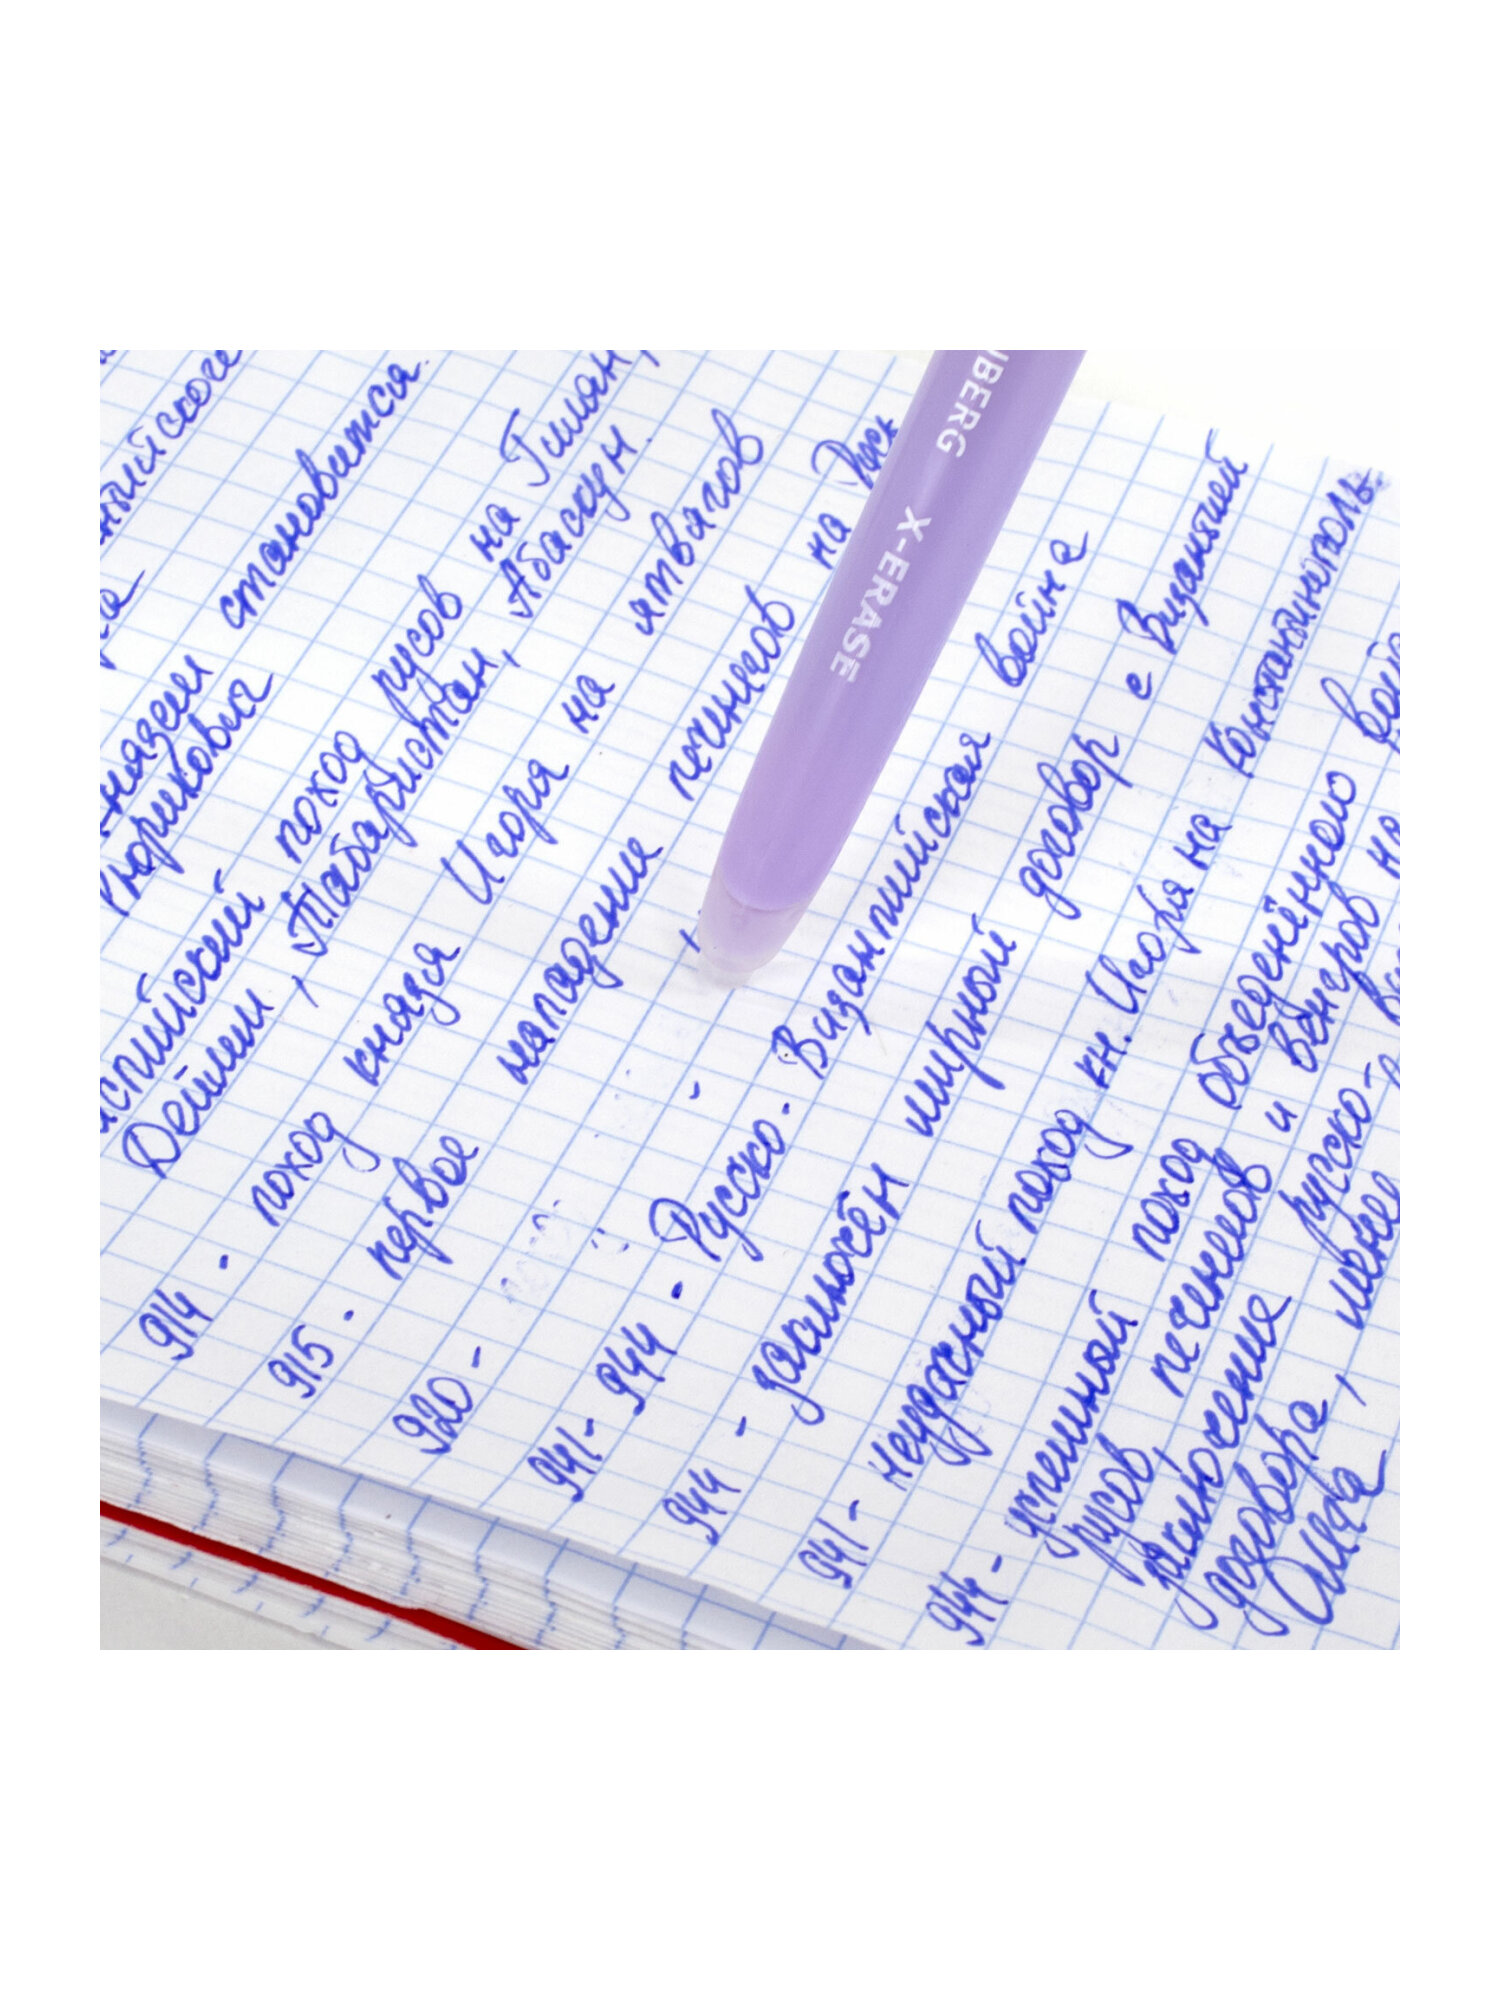 становится.
Рюриковича
поход русов на Гилян,
Дейлем, Табаристан, Абаскун.
914 - поход князя Игоря на ятвягов
915 - первое нападение печенегов на Русь
920 -
941 - 944 - Русско - Византийская война
944 - заключён мирный договор с Византией
941 - неудачный поход кн. Игоря на Константинополь.
944 - успешный поход объеденённого
русов, печенегов и венгров на
заключение русско -
договора, менее
UBERG X-ERASE